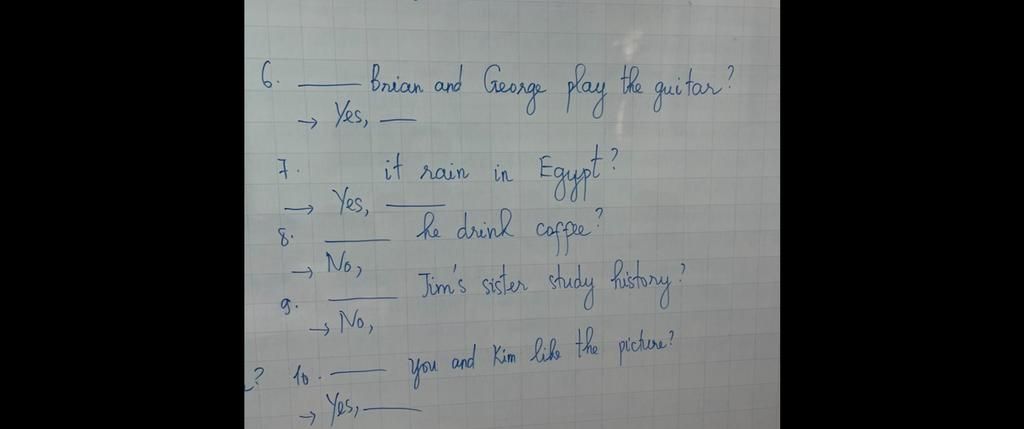 6. ____ Brian and George play the guitar?
→ Yes, ____
7. it rain in Egypt?
→ Yes, ____
8. ____ he drink coffee?
→ No,
9. ____ Jim's sister study history?
→ No,
? 10. ____ you and Kim like the picture?
→ Yes, ____